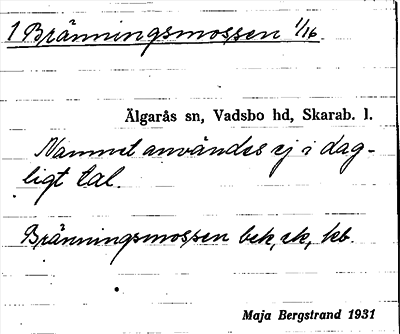 1 Bränningsmossen 1/16.
Älgarås sn, Vadsbo hd, Skarab. l.
Namnet användes ej i dag-
ligt tal.
Bränningsmossen bek, ek, kb.
Maja Bergstrand 1931